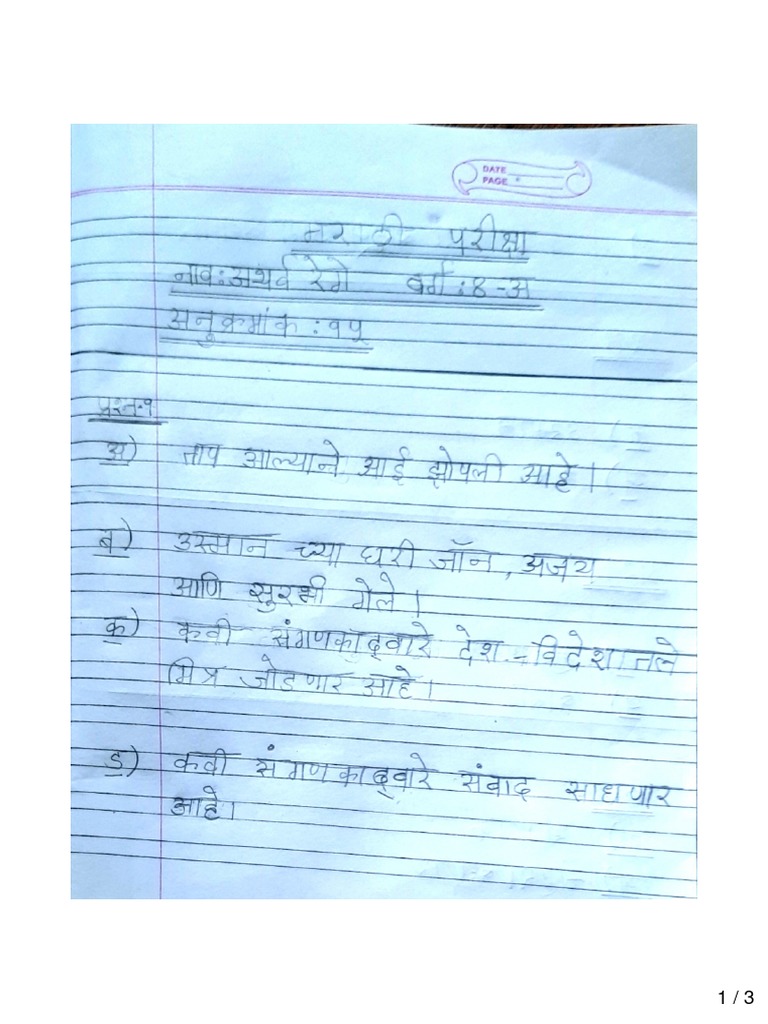 DATE
PAGE
मराठी परीक्षा
नाव: अथर्व रेगे वर्ग: ४-अ
अनुक्रमांक : १५
प्रश्न-१
अ) ताप आल्याने आई झोपली आहे।
ब) उस्मान च्या घरी जॉन, अजय
आणि सुरभी गेले।
क) कवी संगणकाद्वारे देश-विदेशातले
मित्र जोडणार आहे।
ड) कवी संगणकाद्वारे संवाद साधणार
आहे।
1 / 3